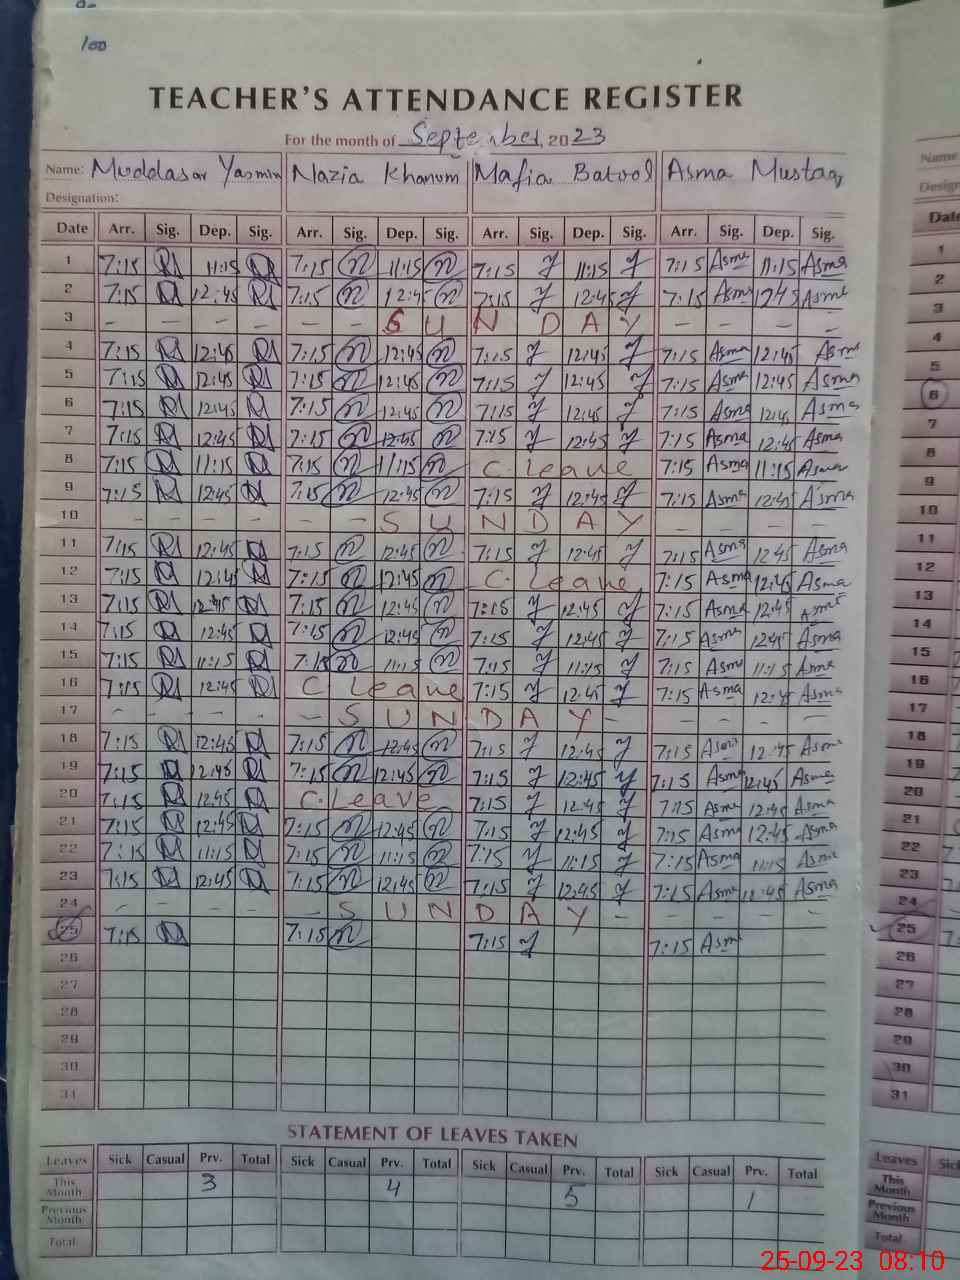 100
TEACHER'S ATTENDANCE REGISTER
For the month of September, 2023
Name: Muddasar Yasmin Nazia Khanum Mafia Batool Asma Mustaq
Designation:
Date Arr. Sig. Dep. Sig. Arr. Sig. Dep. Sig. Arr. Sig. Dep. Sig. Arr. Sig. Dep. Sig.
1 7:15 11:15 7:15 11:15 7:15 11:15 7:15 Asma 11:15 Asma
2 7:15 12:45 7:15 12:45 7:15 12:45 7:15 Asma 1245 Asma
3 – – – – – – S U N D A Y – – – –
4 7:15 12:45 7:15 12:45 7:15 12:45 7:15 Asma 12:45 Asma
5 7:15 12:45 7:15 12:45 7:15 12:45 7:15 Asma 12:45 Asma
6 7:15 12:45 7:15 12:45 7:15 12:45 7:15 Asma 12:45 Asma
7 7:15 12:45 7:15 12:45 7:15 12:45 7:15 Asma 12:45 Asma
8 7:15 11:15 7:15 11:15 C. Leave 7:15 Asma 11:15 Asma
9 7:15 12:45 7:15 12:45 7:15 12:45 7:15 Asma 12:45 Asma
10 – – – – – – S U N D A Y – – – –
11 7:15 12:45 7:15 12:45 7:15 12:45 7:15 Asma 12:45 Asma
12 7:15 12:45 7:15 12:45 C. Leave 7:15 Asma 12:45 Asma
13 7:15 12:45 7:15 12:45 7:15 12:45 7:15 Asma 12:45 Asma
14 7:15 12:45 7:15 12:45 7:15 12:45 7:15 Asma 12:45 Asma
15 7:15 11:15 7:15 11:15 7:15 11:15 7:15 Asma 11:15 Asma
16 7:15 12:45 C. Leave 7:15 12:45 7:15 Asma 12:45 Asma
17 – – – – – S U N D A Y – – – – –
18 7:15 12:45 7:15 12:45 7:15 12:45 7:15 Asma 12:45 Asma
19 7:15 12:45 7:15 12:45 7:15 12:45 7:15 Asma 12:45 Asma
20 7:15 12:45 C. Leave 7:15 12:45 7:15 Asma 12:45 Asma
21 7:15 12:45 7:15 12:45 7:15 12:45 7:15 Asma 12:45 Asma
22 7:15 11:15 7:15 11:15 7:15 11:15 7:15 Asma 11:15 Asma
23 7:15 12:45 7:15 12:45 7:15 12:45 7:15 Asma 12:45 Asma
24 – – – – – S U N D A Y – – – – –
25 7:15 7:15 7:15 7:15 Asm
26
27
28
29
30
31
STATEMENT OF LEAVES TAKEN
Leaves Sick Casual Prv. Total Sick Casual Prv. Total Sick Casual Prv. Total Sick Casual Prv. Total
This Month 3 4 5 1
Previous Month
Total
Name
Design
Date
1
2
3
4
5
6
7
8
9
10
11
12
13
14
15
16
17
18
19
20
21
22
23
24
25
26
27
28
29
30
31
Leaves Sick
This Month
Previous Month
Total
25-09-23 08:10